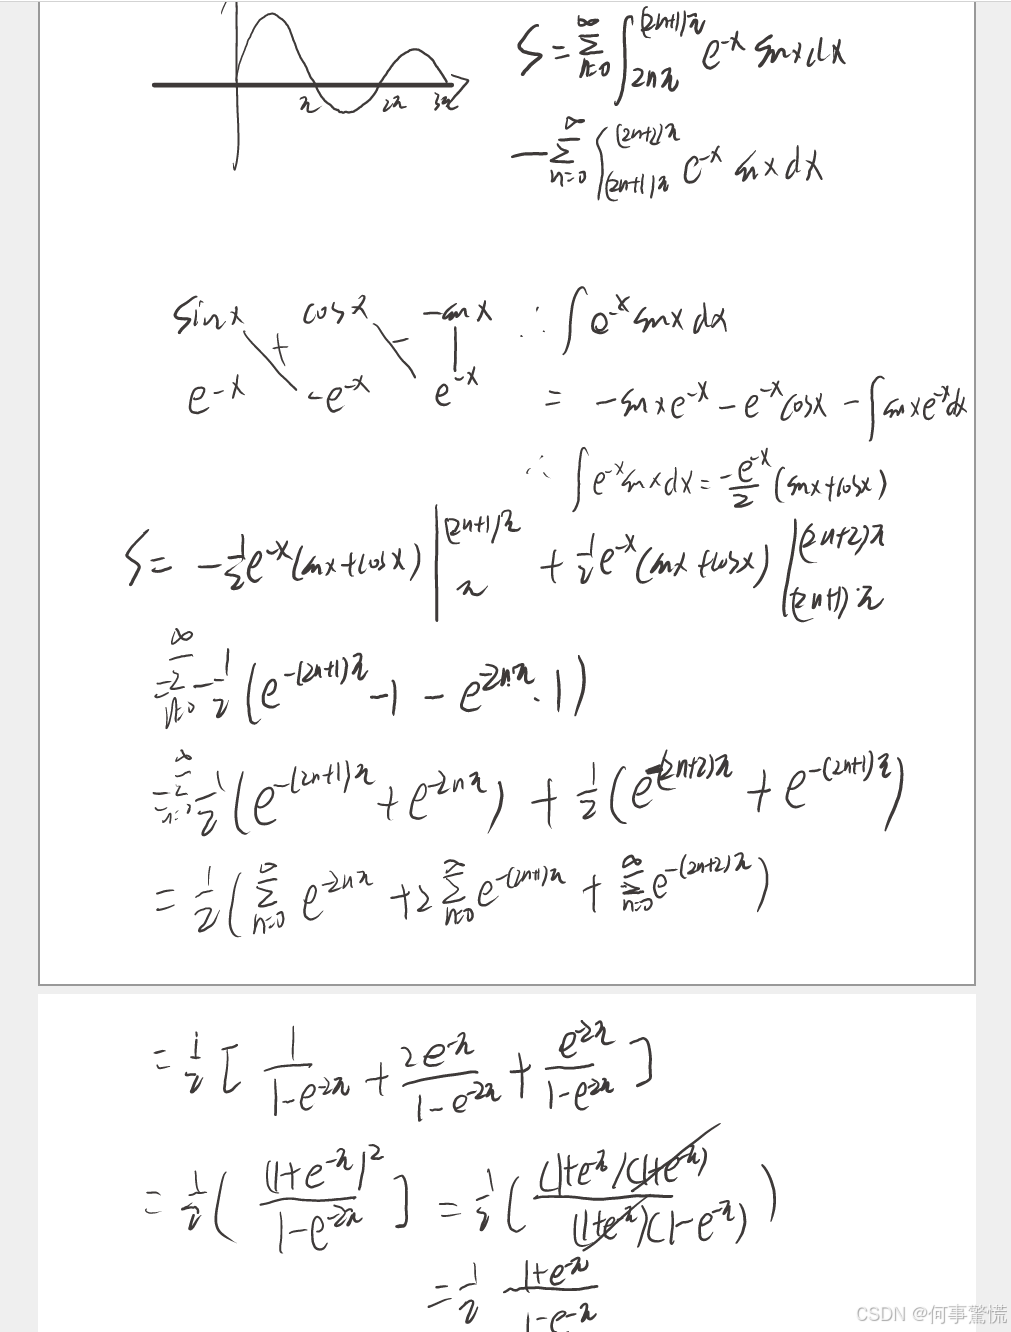 S = ∑_{n=0}^{∞} ∫_{2nπ}^{(2n+1)π} e^{-x} sinx dx
π 2π 3π
- ∑_{n=0}^{∞} ∫_{(2n+1)π}^{(2n+2)π} e^{-x} sinx dx
sinx + cosx - -sinx ∴ ∫ e^{-x} sinx dx
e^{-x} -e^{-x} e^{-x} = -sinx e^{-x} - e^{-x} cosx - ∫ sinx e^{-x} dx
∴ ∫ e^{-x} sinx dx = \frac{-e^{-x}}{2} (sinx + cosx)
S = -\frac{1}{2} e^{-x} (sinx + cosx) |_{π}^{(2n+1)π} + \frac{1}{2} e^{-x} (sinx + cosx) |_{(2n+1)π}^{(2n+2)π}
= ∑_{n=0}^{∞} -\frac{1}{2} (e^{-(2n+1)π} · -1 - e^{-2nπ} · 1)
= ∑_{n=0}^{∞} \frac{1}{2} (e^{-(2n+1)π} + e^{-2nπ}) + \frac{1}{2} (e^{-(2n+2)π} + e^{-(2n+1)π})
= \frac{1}{2} (∑_{n=0}^{∞} e^{-2nπ} + 2 ∑_{n=0}^{∞} e^{-(2n+1)π} + ∑_{n=0}^{∞} e^{-(2n+2)π})
= \frac{1}{2} [\frac{1}{1-e^{-2π}} + \frac{2e^{-π}}{1-e^{-2π}} + \frac{e^{-2π}}{1-e^{-2π}}]
= \frac{1}{2} (\frac{(1+e^{-π})^2}{1-e^{-2π}}] = \frac{1}{2} (\frac{(1+e^{-π})(1+e^{-π})}{(1+e^{-π})(1-e^{-π})})
= \frac{1}{2} \frac{1+e^{-π}}{1-e^{-π}}
CSDN @何事驚慌